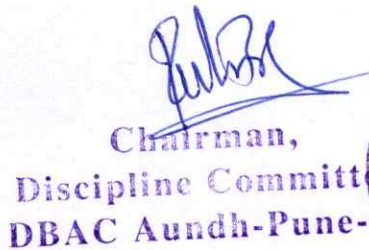 Chairman,
Discipline Committ
DBAC Aundh-Pune-